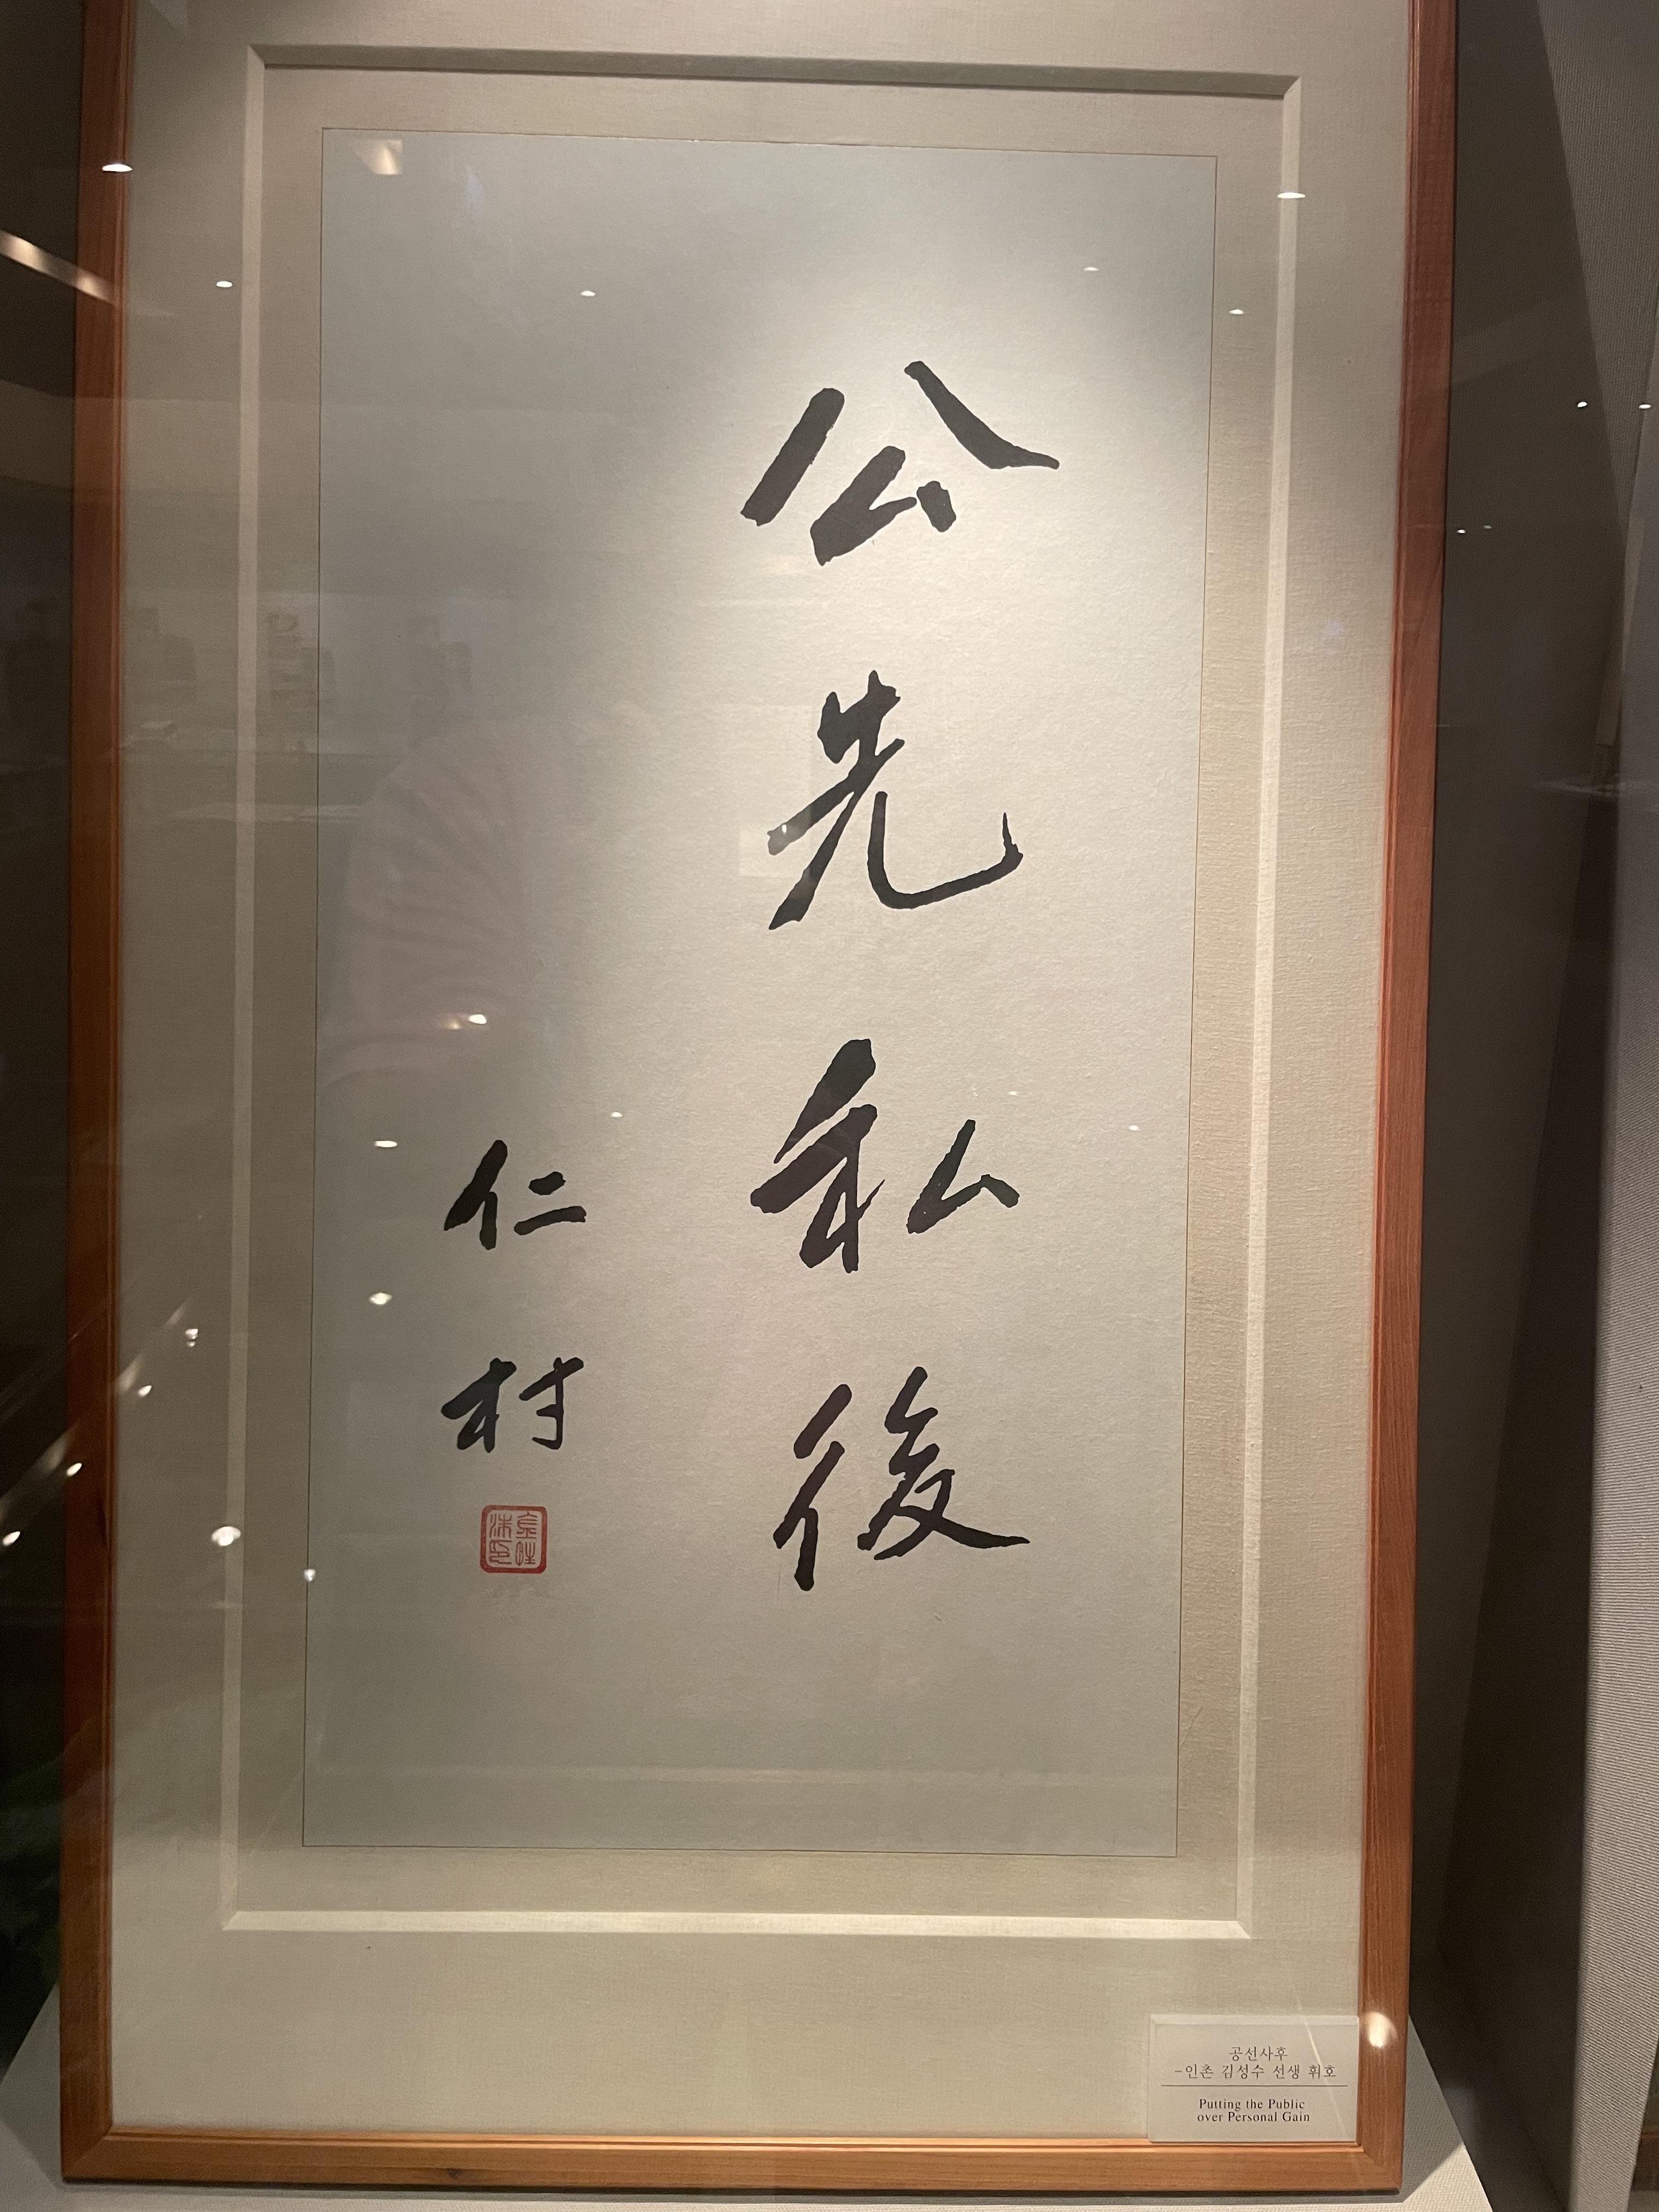 公先私後
仁村
공선사후
-인촌 김성수 선생 휘호
Putting the Public
over Personal Gain